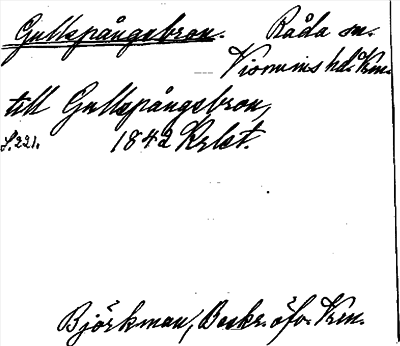 Gullspångsbron. Råda sn.
Visnums hd. Vrm.
till Gullspångsbron,
S. 221. 1842 Krlst.
Björkman, Beskr. öfv. Vrm.